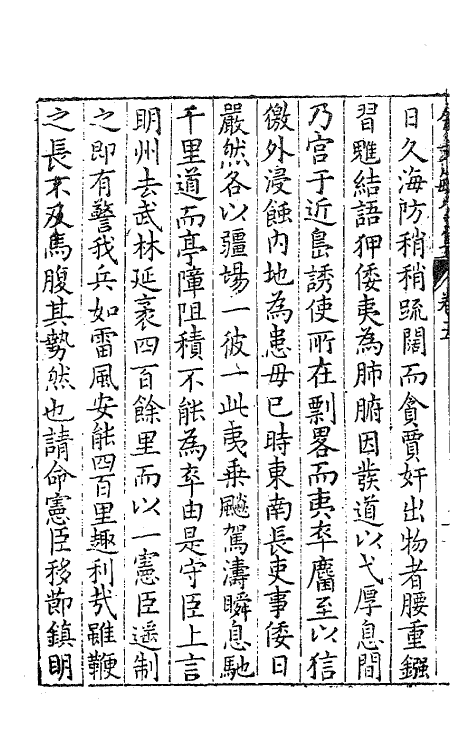 日久海防稍稍疏闊而貪賈奸出物者腰重鏹
習雕結語狎倭夷為肺腑因𤼵道以弋厚息間
乃宫于近島誘使所在剽畧而夷卒麕至以狺
徼外浸蝕内地為患毋已時東南長吏事倭日
嚴然各以疆場一彼一此夷乗颷駕濤瞬息馳
千里道而亭障阻積不能為卒由是守臣上言
明州去武林延袤四百餘里而以一憲臣遥制
之即有警我兵如雷風安能四百里趣利㢤雖鞭
之長不及馬腹其勢然也請命憲臣移節鎮明
卷五